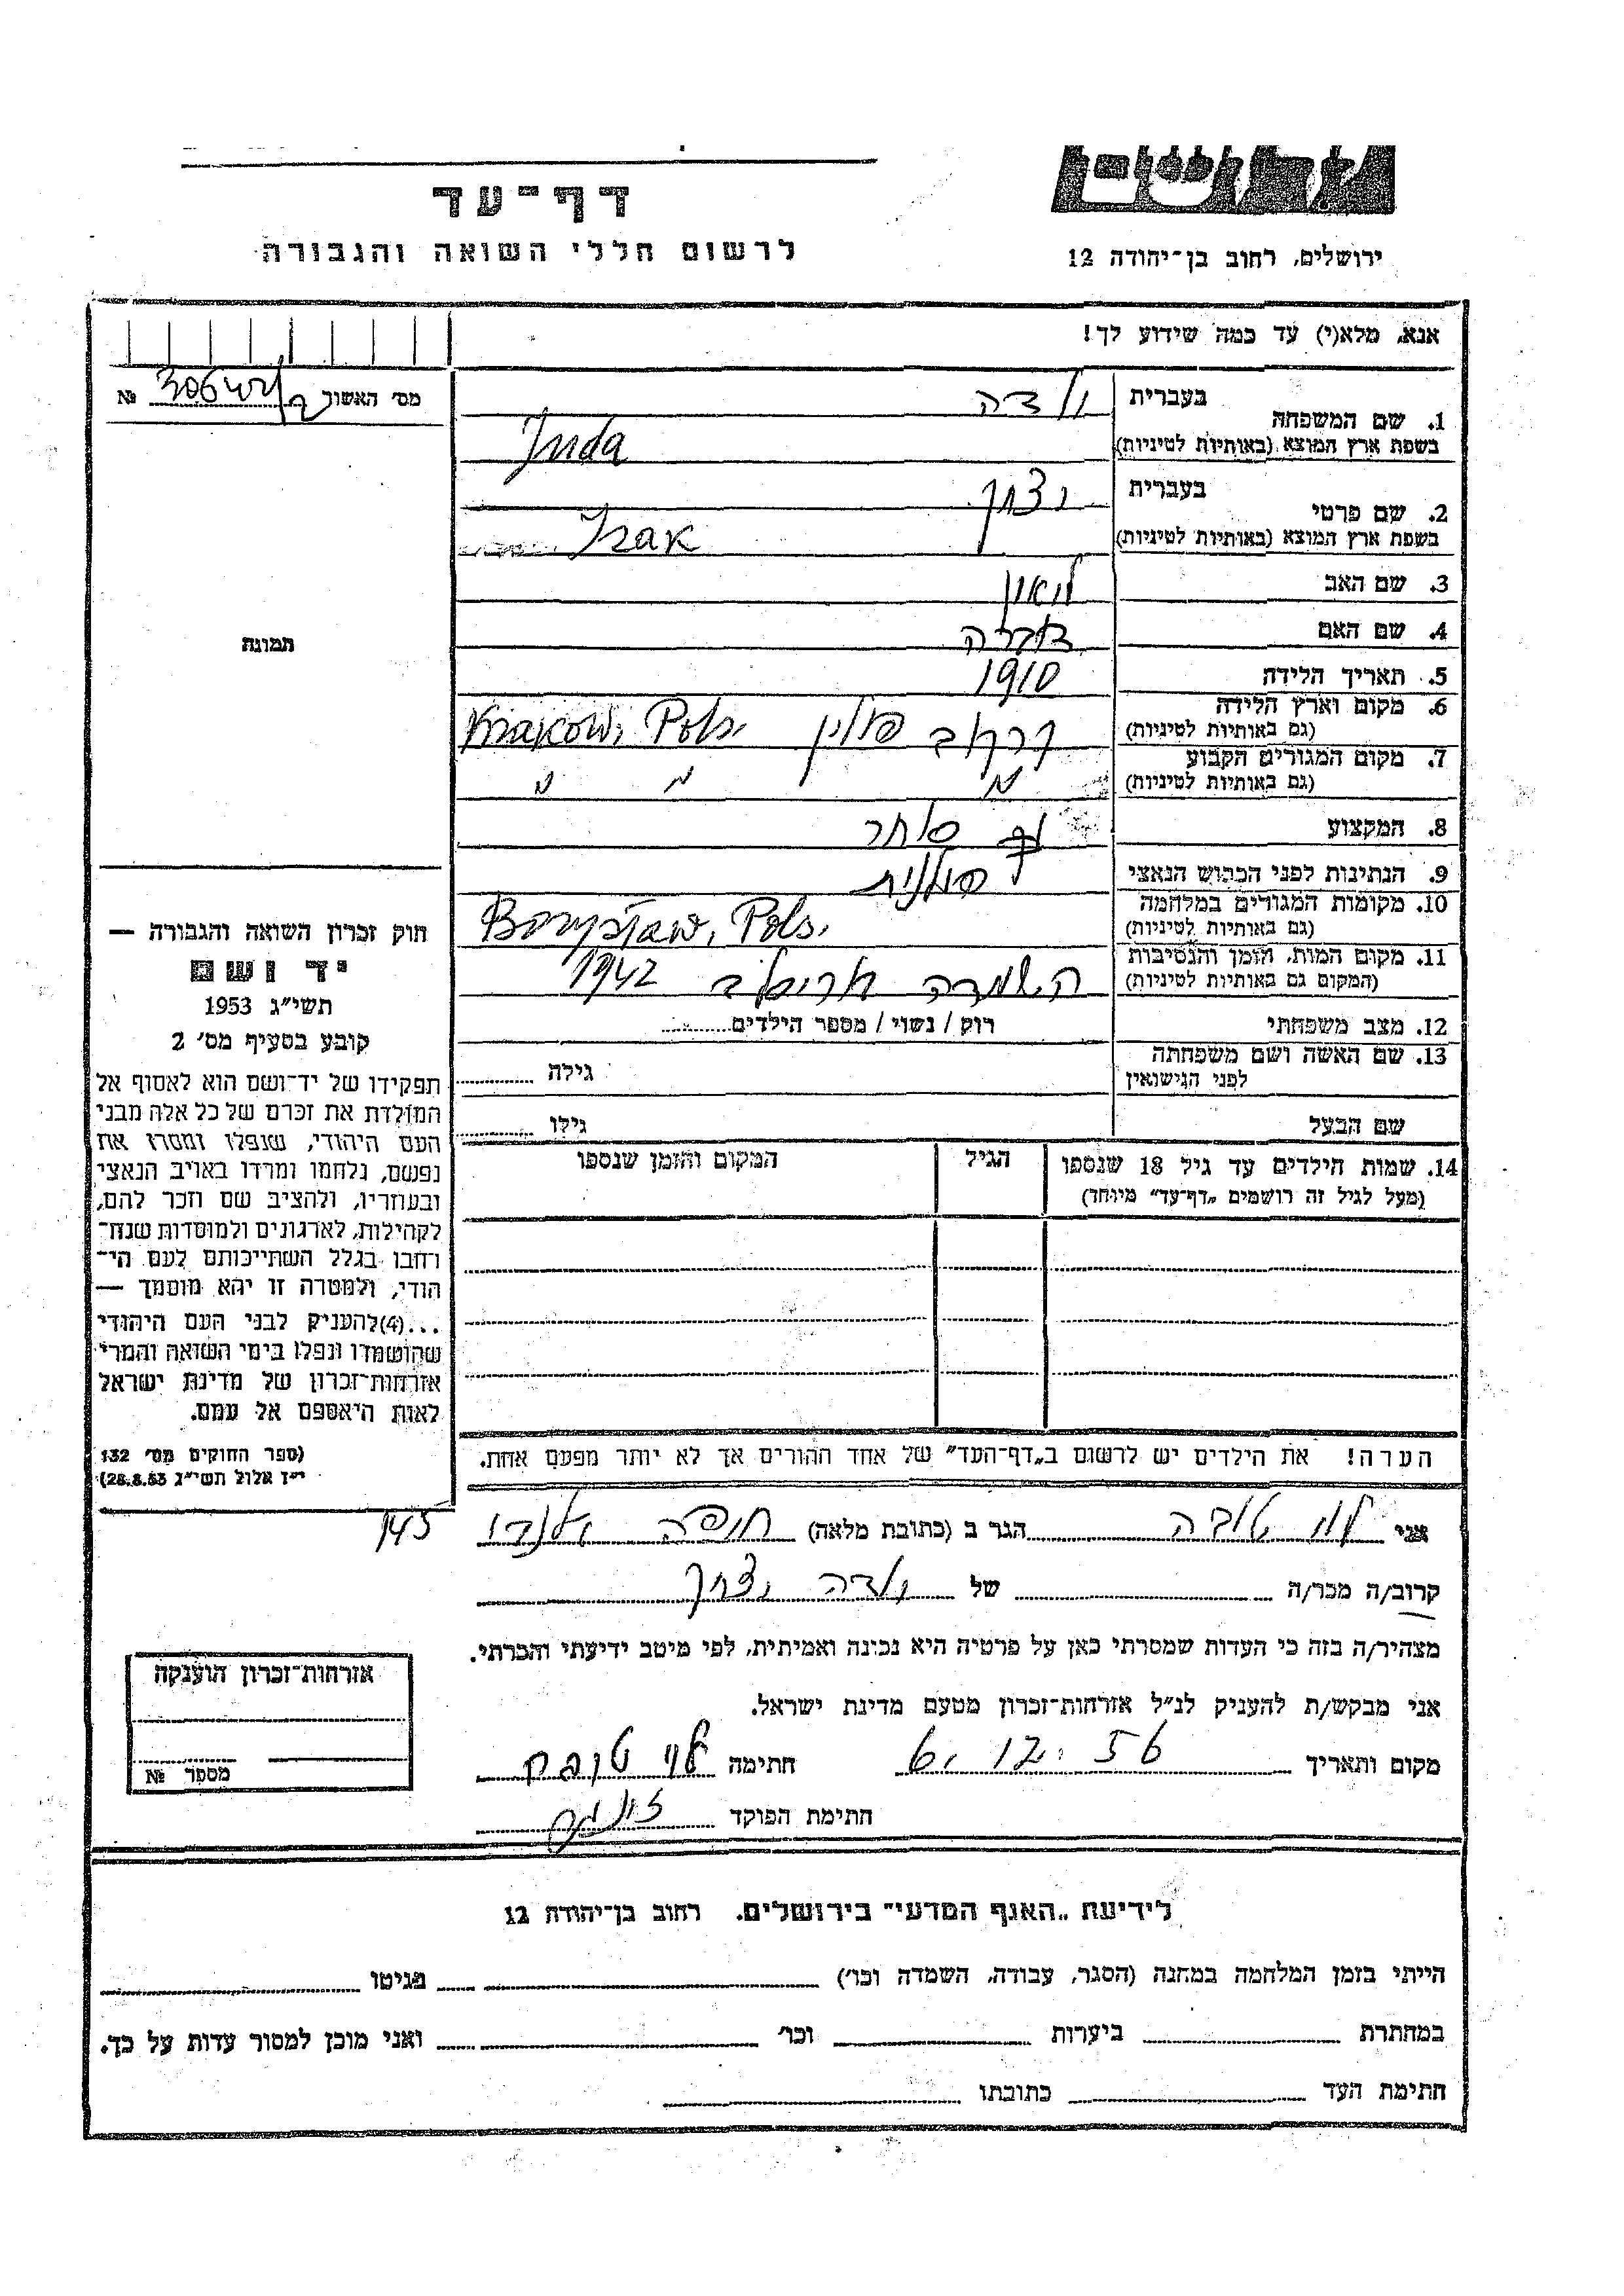 יד ושם
דף־עד
לרשום חללי השואה והגבורה
ירושלים, רחוב בן־יהודה 12
אנא, מלא(י) עד כמה שידוע לך!
מס' האשור №
1. שם המשפחה בעברית יודה
בשפת ארץ המוצא (באותיות לטיניות) Juda
2. שם פרטי בעברית יצחק
בשפת ארץ המוצא (באותיות לטיניות) Izak
3. שם האב
4. שם האם
5. תאריך הלידה 1910
6. מקום וארץ הלידה (גם באותיות לטיניות) קרקוב פולין Krakow, Pols.
7. מקום המגורים הקבוע (גם באותיות לטיניות) " " "
8. המקצוע סוחר
9. הנתינות לפני הכבוש הנאצי פולנית
10. מקומות המגורים במלחמה (גם באותיות לטיניות) Borysław, Pols.
11. מקום המות, הזמן והנסיבות (המקום גם באותיות לטיניות) השמדה 1942
12. מצב משפחתי רוק / נשוי / מספר הילדים
13. שם האשה ושם משפחתה לפני הנישואין גילה
שם הבעל גילו
14. שמות הילדים עד גיל 18 שנספו הגיל המקום והזמן שנספו
(מעל לגיל זה רושמים „דף־עד" מיוחד)
הערה! את הילדים יש לרשום ב„דף־העד" של אחד ההורים אך לא יותר מפעם אחת.
תמונה
חוק זכרון השואה והגבורה —
יד ושם
תשי"ג 1953
קובע בסעיף מס' 2
תפקידו של יד־ושם הוא לאסוף אל
המולדת את זכרם של כל אלה מבני
העם היהודי, שנפלו ומסרו את
נפשם, נלחמו ומרדו באויב הנאצי
ובעוזריו, ולהציב שם וזכר להם,
לקהילות, לארגונים ולמוסדות שנח־
רחבו בגלל השתייכותם לעם הי־
הודי, ולמטרה זו יהא מוסמך —
...(4)להעניק לבני העם היהודי
שהושמדו ונפלו בימי השואה והמרי
אזרחות־זכרון של מדינת ישראל
לאות היאספם אל עמם.
(ספר החוקים מס' 132
י"ז אלול תשי"ג 28.8.53)
אני לוי טובה הגר ב (כתובת מלאה) חיפה 145
קרוב/ה מכר/ה של יודה יצחק
מצהיר/ה בזה כי העדות שמסרתי כאן על פרטיה היא נכונה ואמיתית, לפי מיטב ידיעתי והכרתי.
אני מבקש/ת להעניק לנ"ל אזרחות־זכרון מטעם מדינת ישראל.
מקום ותאריך 6.12.56 חתימה לוי טובה
חתימת הפוקד
אזרחות־זכרון הוענקה
מספר №
לידיעת „האגף המדעי" בירושלים, רחוב בן־יהודה 12
הייתי בזמן המלחמה במחנה (הסגר, עבודה, השמדה וכו') בגיטו
במחתרת ביערות וכו' ואני מוכן למסור עדות על כך.
חתימת העד כתובתו